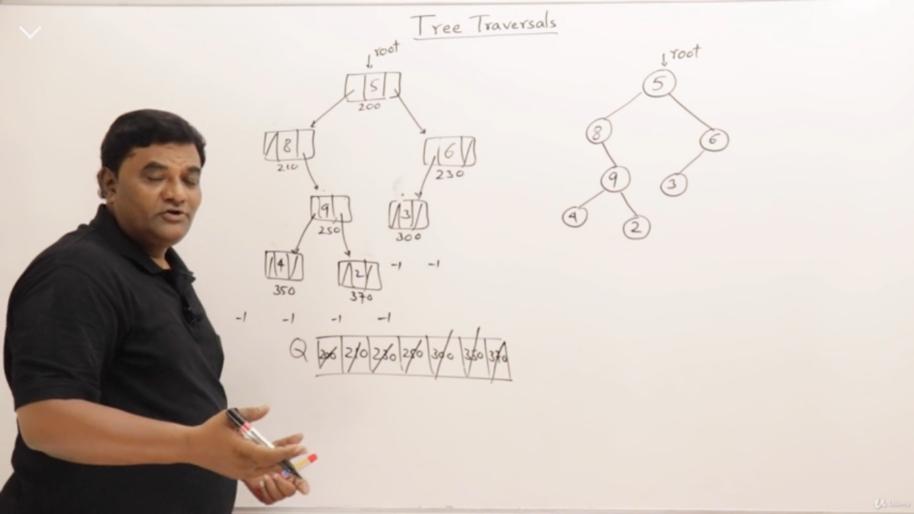 Tree Traversals
root
5
200
8
210
6
230
9
250
3
300
4
350
2
370
-1 -1
-1 -1 -1 -1
Q 200 210 230 250 300 350 370
root
5
8
6
9
3
4
2
Udemy